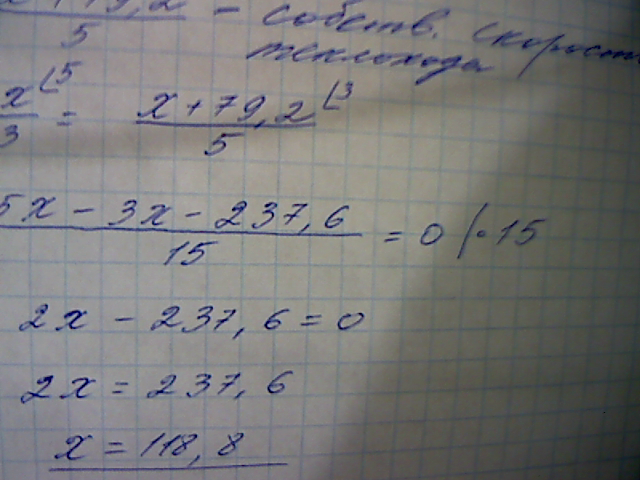 x + 79,2 / 5 - собств. скорость теплохода
x/3 ⌊5 = x + 79,2 / 5 ⌊3
5x - 3x - 237,6 / 15 = 0 / · 15
2x - 237,6 = 0
2x = 237,6
x = 118,8